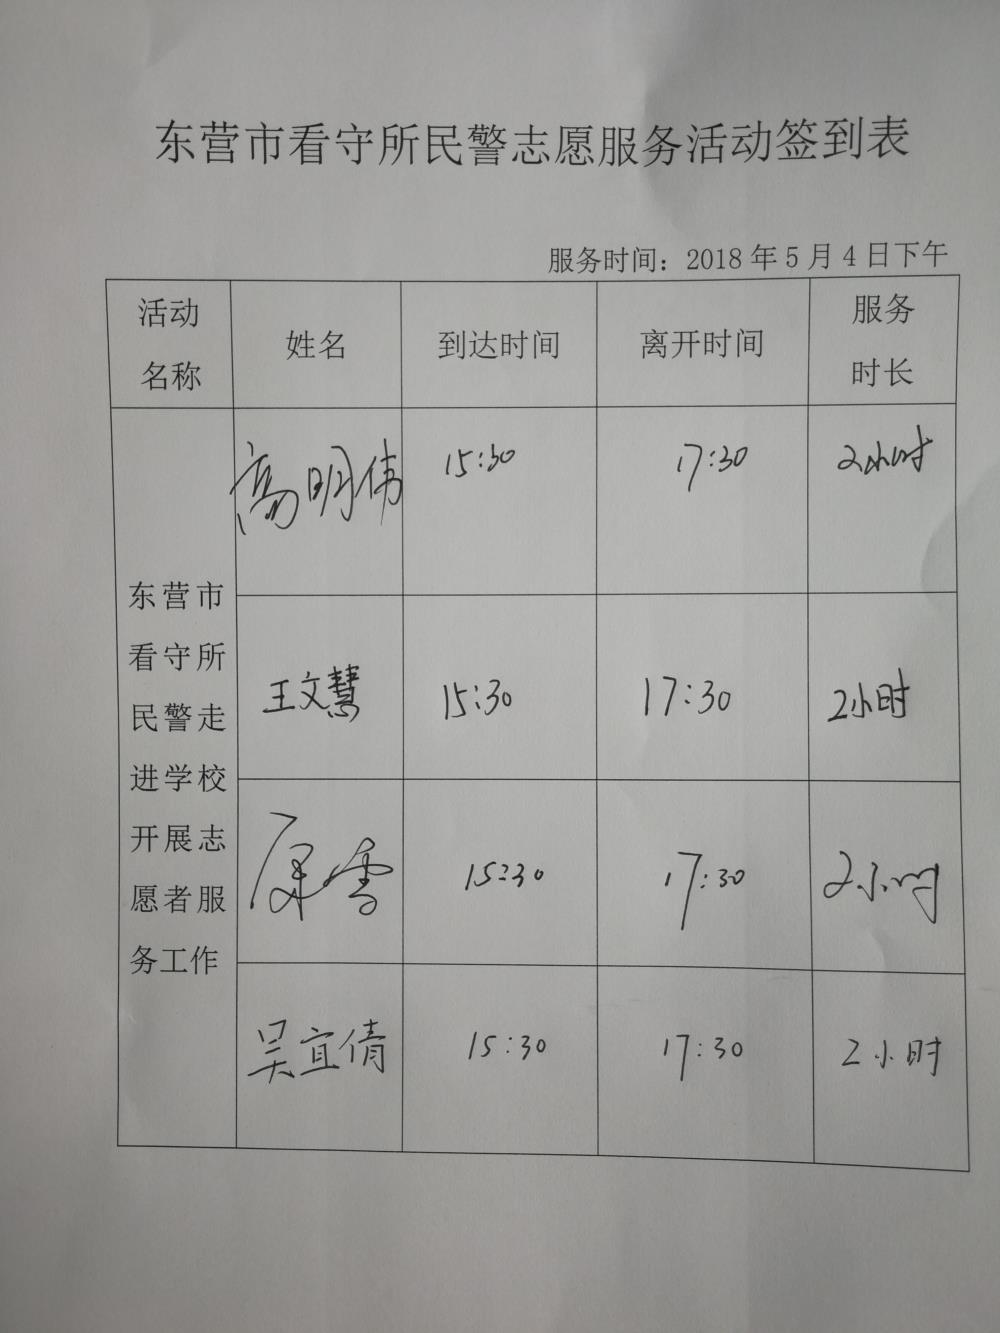 东营市看守所民警志愿服务活动签到表
服务时间：2018年5月4日下午
活动
名称
姓名
到达时间
离开时间
服务
时长
东营市
看守所
民警走
进学校
开展志
愿者服
务工作
高明伟
15:30
17:30
2小时
王文慧
15:30
17:30
2小时
雪
15:30
17:30
2小时
吴宜倩
15:30
17:30
2小时